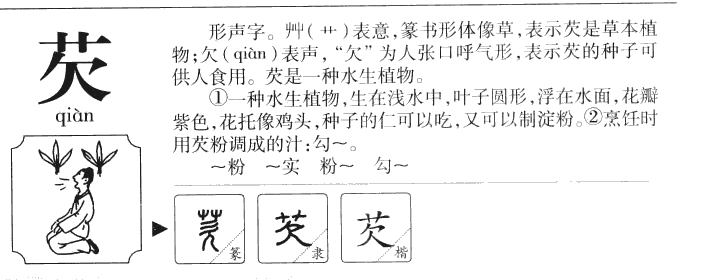 芡
qiàn
形声字。艸(艹)表意,篆书形体像草,表示芡是草本植
物;欠(qiàn)表声,“欠”为人张口呼气形,表示芡的种子可
供人食用。芡是一种水生植物。
①一种水生植物,生在浅水中,叶子圆形,浮在水面,花瓣
紫色,花托像鸡头,种子的仁可以吃,又可以制淀粉。②烹饪时
用芡粉调成的汁:勾～。
～粉 ～实 粉～ 勾～
芡 篆 芡 隶 芡 楷